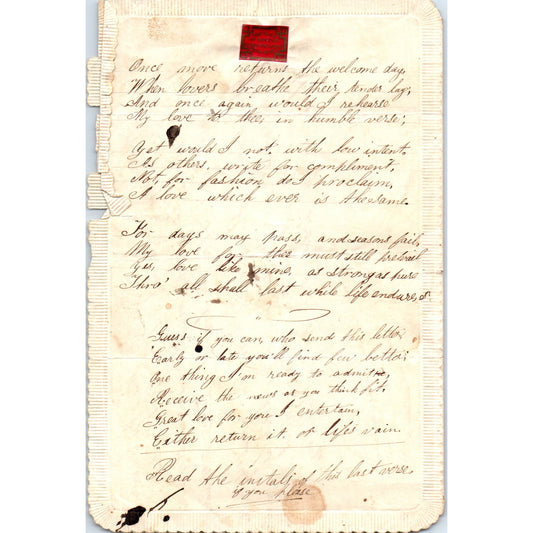 Once more returns the welcome day,
When lovers breathe their tender lay,
And once again would I rehearse
My love to thee, in humble verse;
Yet would I not, with low intent,
As others, write for compliment,
Not for fashion do I proclaim,
A love which ever is the same.
For days may pass, and seasons fail,
My love for thee must still prevail
Yes, love like mine, as strong as pure
Thro' all shall last while life endures.
Guess if you can, who send this letter
Early or late you'll find few better
One thing I'm ready to admit,
Receive the news as you think fit,
Great love for you I entertain,
Either return it, or life's vain.
Read the initals of this last verse
if you please